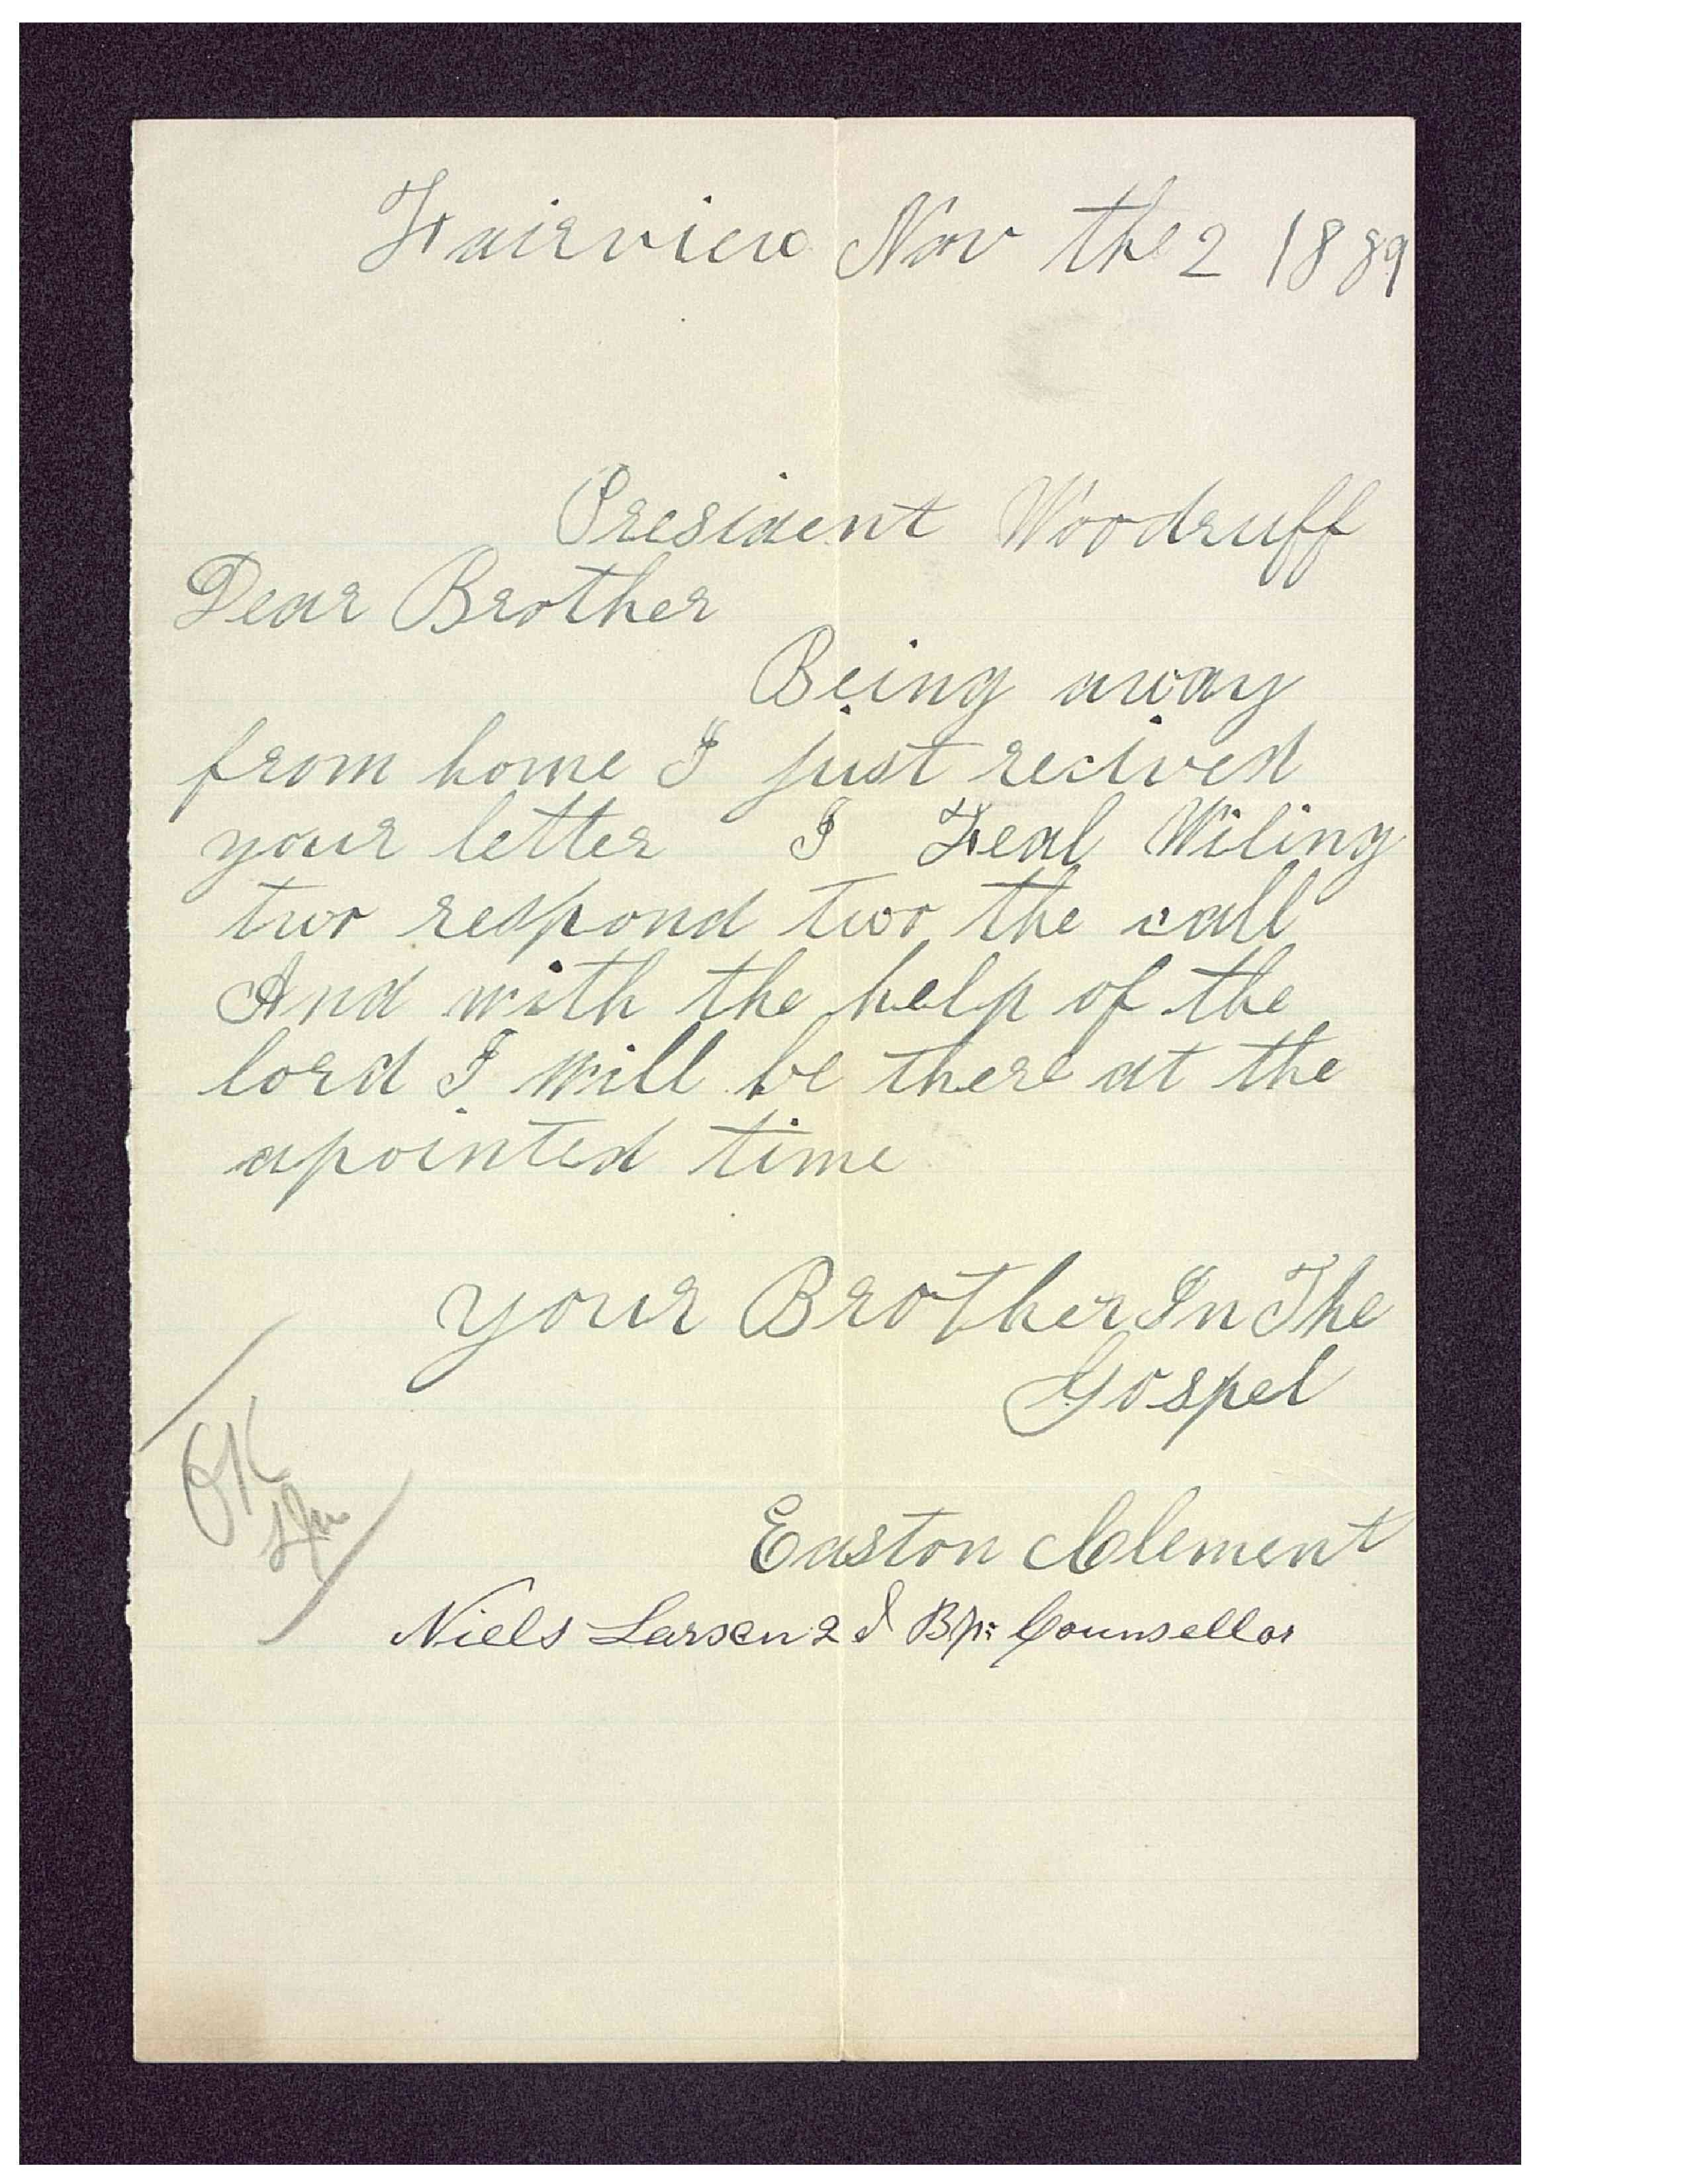 Fairview Nov the 2 1889
President Woodruff
Dear Brother
Being away
from home I just recived
your letter I Feal Wiling
two respond two the call
And with the help of the
lord I will be there at the
apointed time
your Brother In The
Gospel
OK
Easton Clement
Niels Larsen 2d Bp: Counsellor